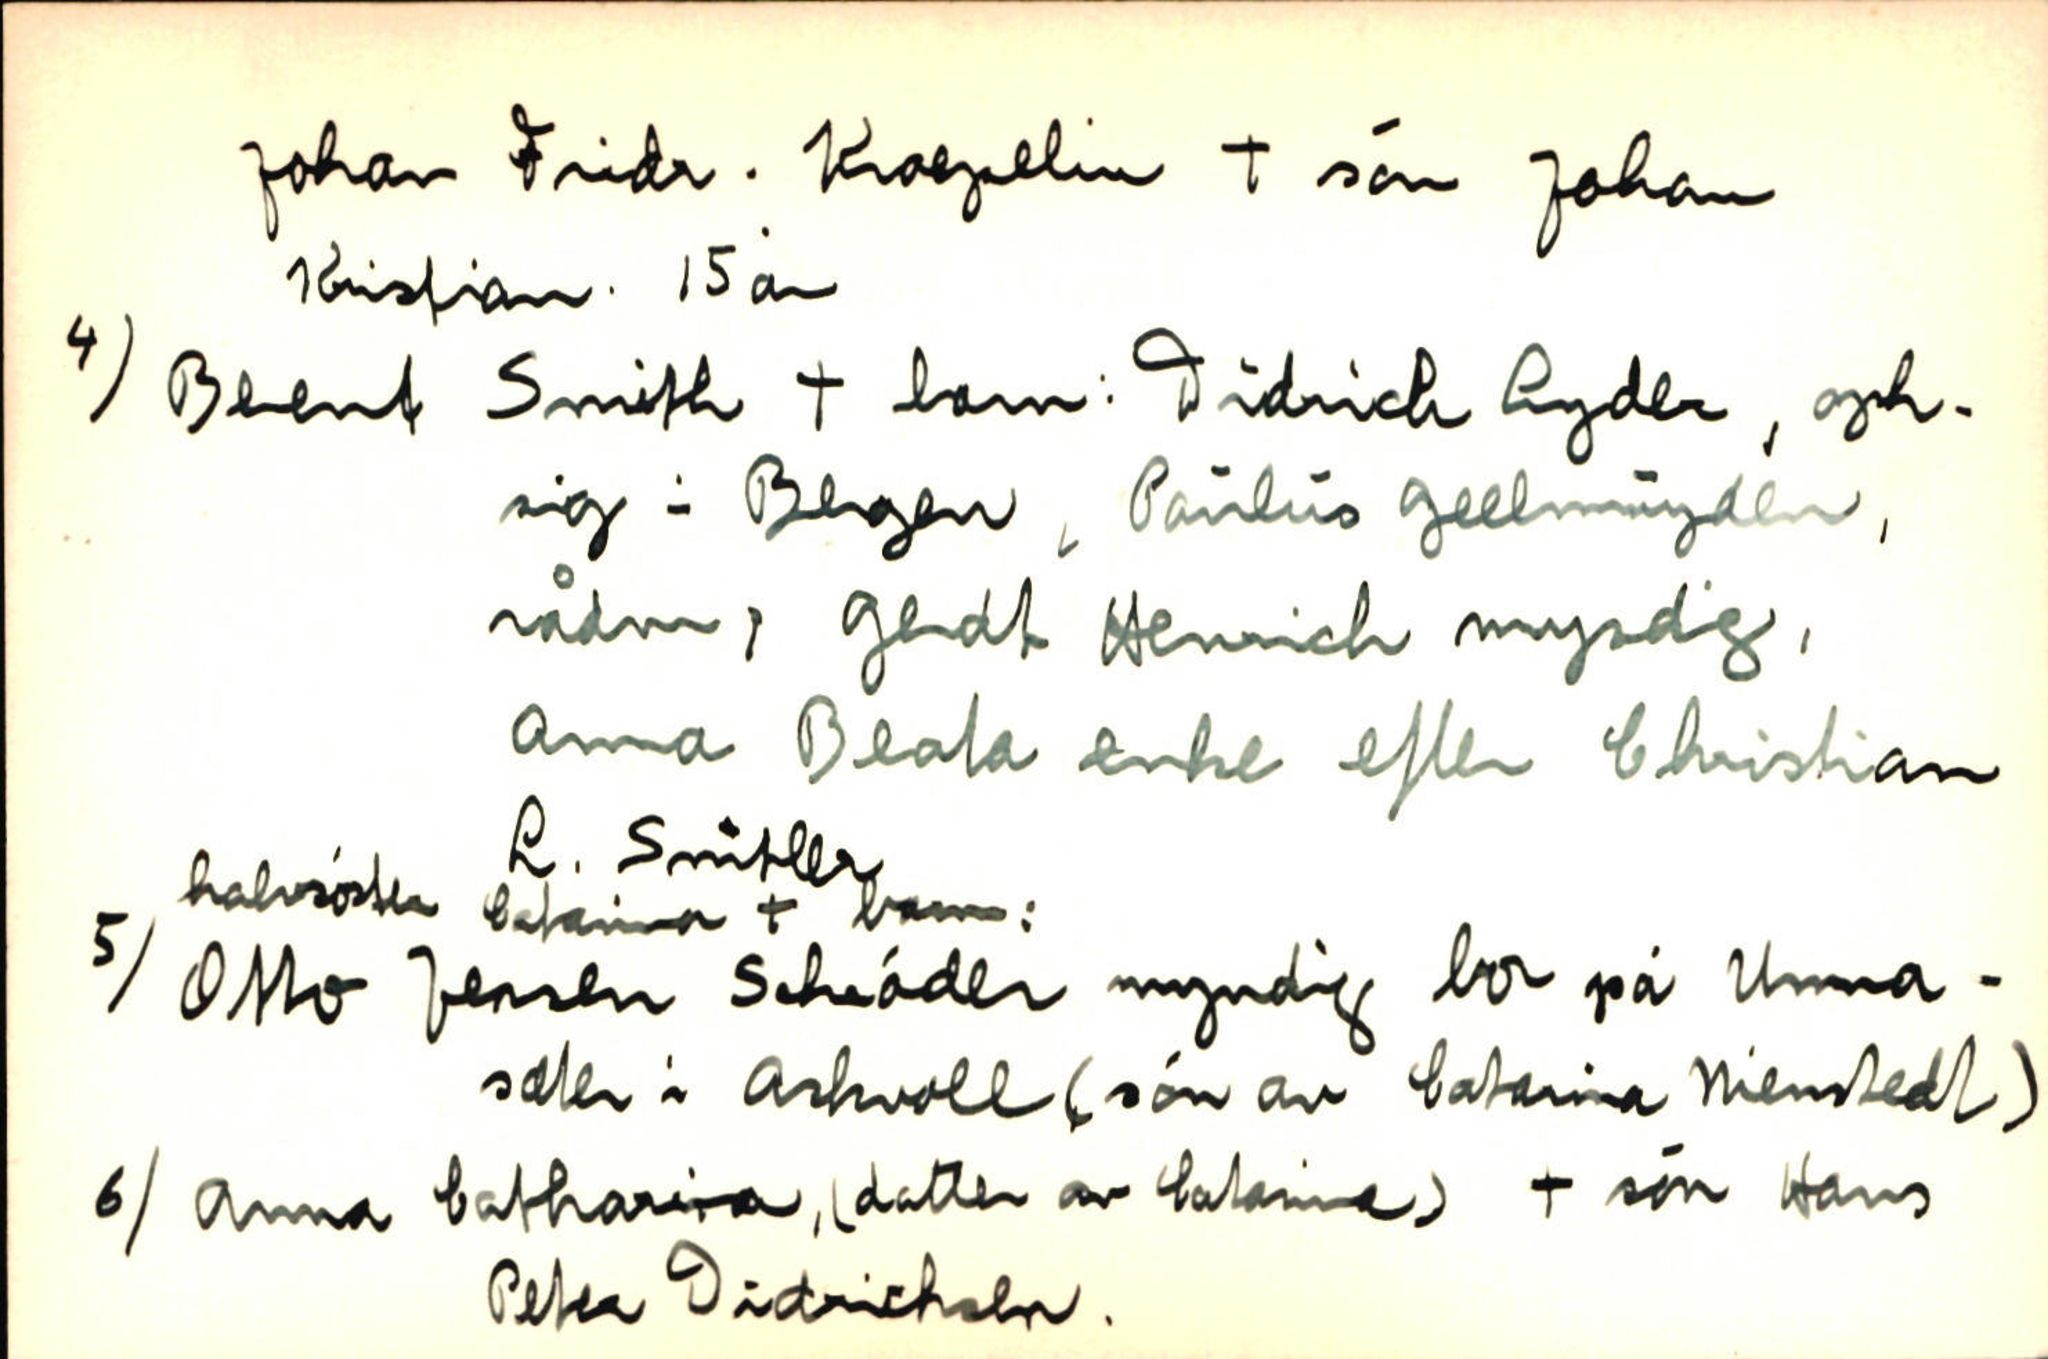 Johan Fridr. Kroepelin † sön Johan
Kristian. 15 år
4) Berent Smith † barn: Didrich Lyder, oph.
sig i Bergen, Paulus Geelmuyden,
rådm, Gerdt Henrich myndig,
Anna Beata enke efter Christian
L. Smitler
halvsöster Catarina † barn:
5) Otto Jensen Schröder myndig bor på Unna-
seter i Askvoll (sön av Catarina Nienstedt)
6) Anna Catharina, (datter av Catarina) † sön Hans
Peter Didrichsen.